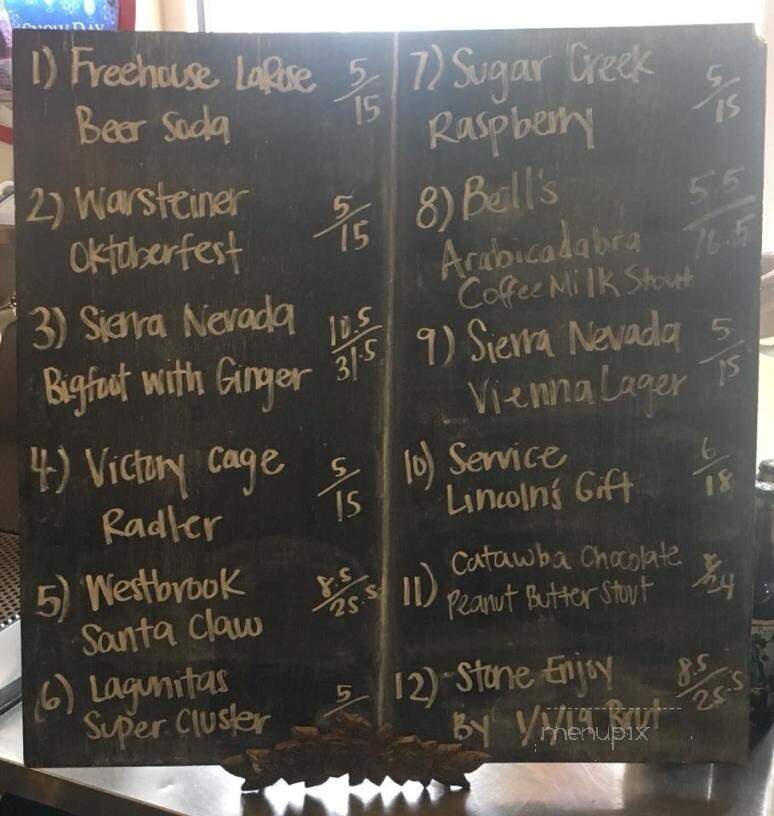 SNOW DAY
1) Freehouse LaRose 5/15
Beer Soda
2) Warsteiner 5/15
Oktoberfest
3) Sierra Nevada 10.5/31.5
Bigfoot with Ginger
4) Victory Cage 5/15
Radler
5) Westbrook 8.5/25.5
Santa Claw
6) Lagunitas 5/
Super Cluster
7) Sugar Creek 5/15
Raspberry
8) Bell's 5.5/16.5
Arabicadabra
Coffee Milk Stout
9) Sierra Nevada 5/15
Vienna Lager
10) Service 6/18
Lincoln's Gift
11) Catawba Chocolate 8/24
Peanut Butter Stout
12) Stone Enjoy 8.5/25.5
By 1/1/19 Brut
menupix